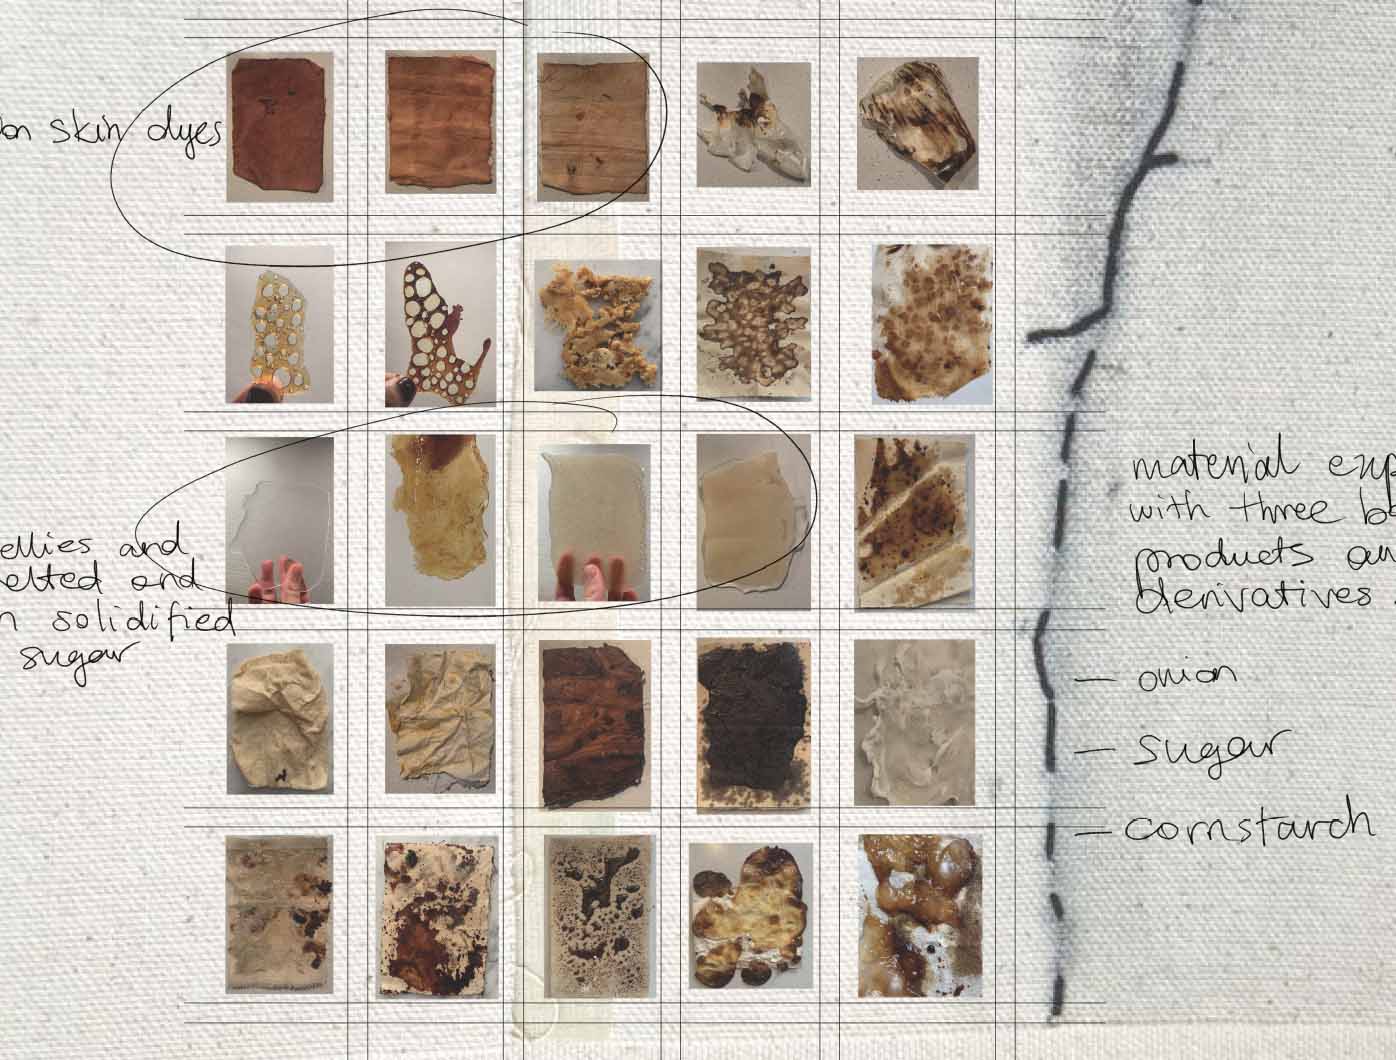 skin dyes
and
and
solidified
sugar
material
with three
products
derivatives
— onion
— sugar
— cornstarch